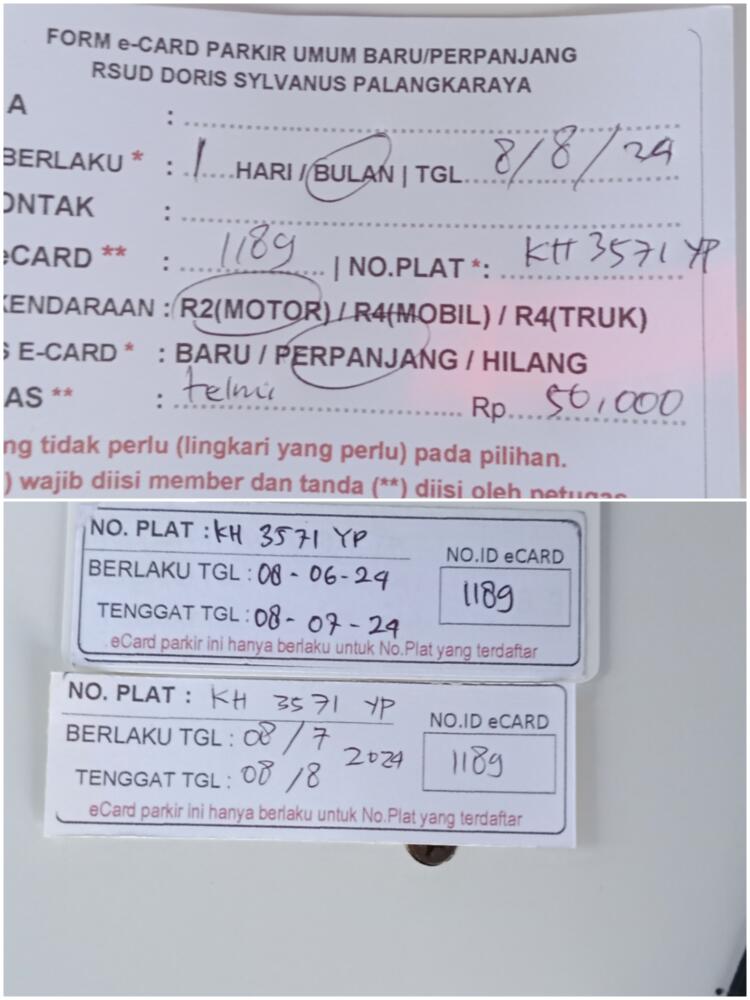 FORM e-CARD PARKIR UMUM BARU/PERPANJANG
RSUD DORIS SYLVANUS PALANGKARAYA
A :
BERLAKU * : 1 HARI / BULAN | TGL 8/8/24
ONTAK :
eCARD ** : 1189 | NO.PLAT *: KH 3571 YP
KENDARAAN : R2(MOTOR) / R4(MOBIL) / R4(TRUK)
S E-CARD * : BARU / PERPANJANG / HILANG
AS ** : Rp. 50,000
ng tidak perlu (lingkari yang perlu) pada pilihan.
) wajib diisi member dan tanda (**) diisi oleh petugas
NO. PLAT : KH 3571 YP
BERLAKU TGL : 08-06-24
TENGGAT TGL : 08-07-24
NO.ID eCARD
1189
eCard parkir ini hanya berlaku untuk No.Plat yang terdaftar
NO. PLAT : KH 3571 YP
BERLAKU TGL : 08/7
2024
TENGGAT TGL : 08/8
NO.ID eCARD
1189
eCard parkir ini hanya berlaku untuk No.Plat yang terdaftar